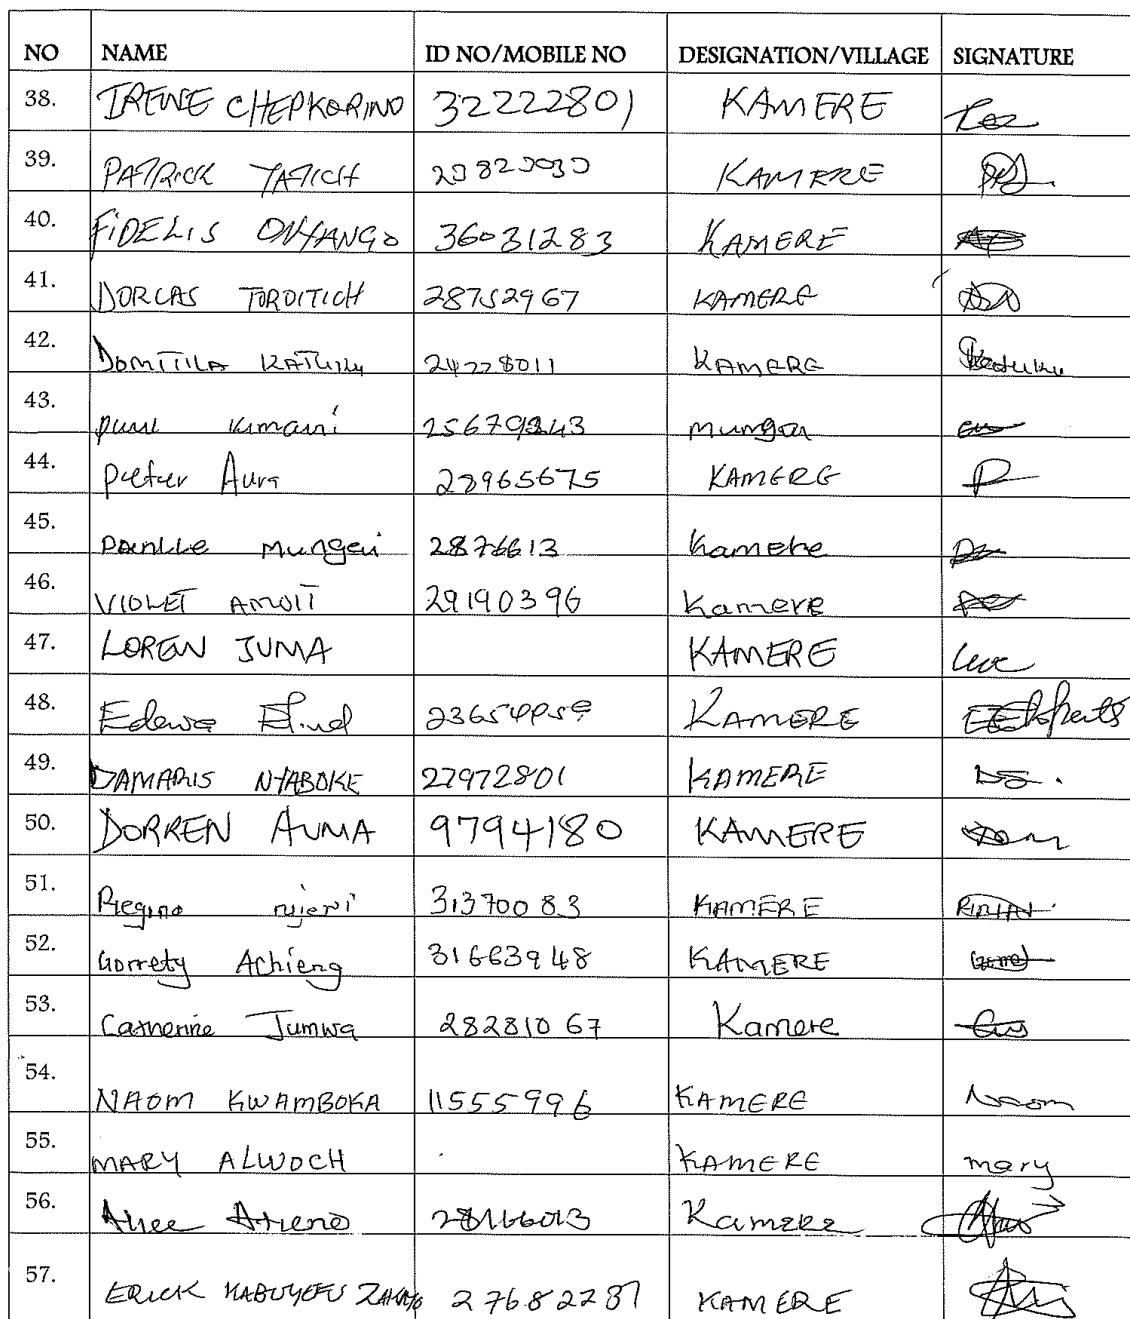 NO NAME ID NO/MOBILE NO DESIGNATION/VILLAGE SIGNATURE
38. IRENE CHEPKORINO 32222801 KAMERE
39. PATRICK YATICH KAMERE
40. FIDELIS ONYANGO 36031283 KAMERE
41. DORCAS TOROITICH 28752967 KAMERE
42. DOMITILA KATUKU 24228011 KAMERE Katuku
43. Kimani mungai
44. Aura 28965675 KAMERE
45. mungai 2876613 Kamere
46. VIOLET AMOIT 29190396 Kamere
47. LOREN JUMA KAMERE
48. KAMERE
49. DAMARIS NYABOKE 27972801 KAMERE
50. DORREN AUMA 9794180 KAMERE
51. Regina njeri 31370083 KAMERE
52. Gorrety Achieng 31663948 KAMERE
53. Catherine Jumwa 28281067 Kamere
54. NAOM KWAMBOKA 11555996 KAMERE Naom
55. MARY ALWOCH KAMERE mary
56. Alice Atieno Kamere
57. ERICK 27682287 KAMERE